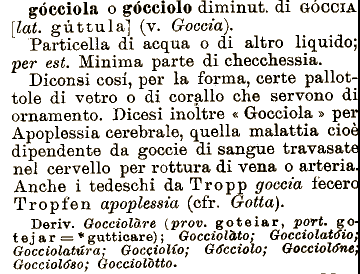 gócciola o gócciolo diminut. di GÓCCIA
[lat. gúttula] (v. Goccia).
Particella di acqua o di altro liquido;
per est. Minima parte di checchessia.
Diconsi cosí, per la forma, certe pallot-
tole di vetro o di corallo che servono di
ornamento. Dicesi inoltre « Gocciola » per
Apoplessia cerebrale, quella malattia cioè
dipendente da goccie di sangue travasate
nel cervello per rottura di vena o arteria.
Anche i tedeschi da Tropp goccia fecero
Tropfen apoplessia (cfr. Gotta).
Deriv. Gocciolàre (prov. goteiar, port. go-
tejar = *gutticare); Gocciolàto; Gocciolatóio;
Gocciolatúra; Gocciolío; Gócciolo; Gocciolóne;
Gocciolóso; Gocciolòtto.